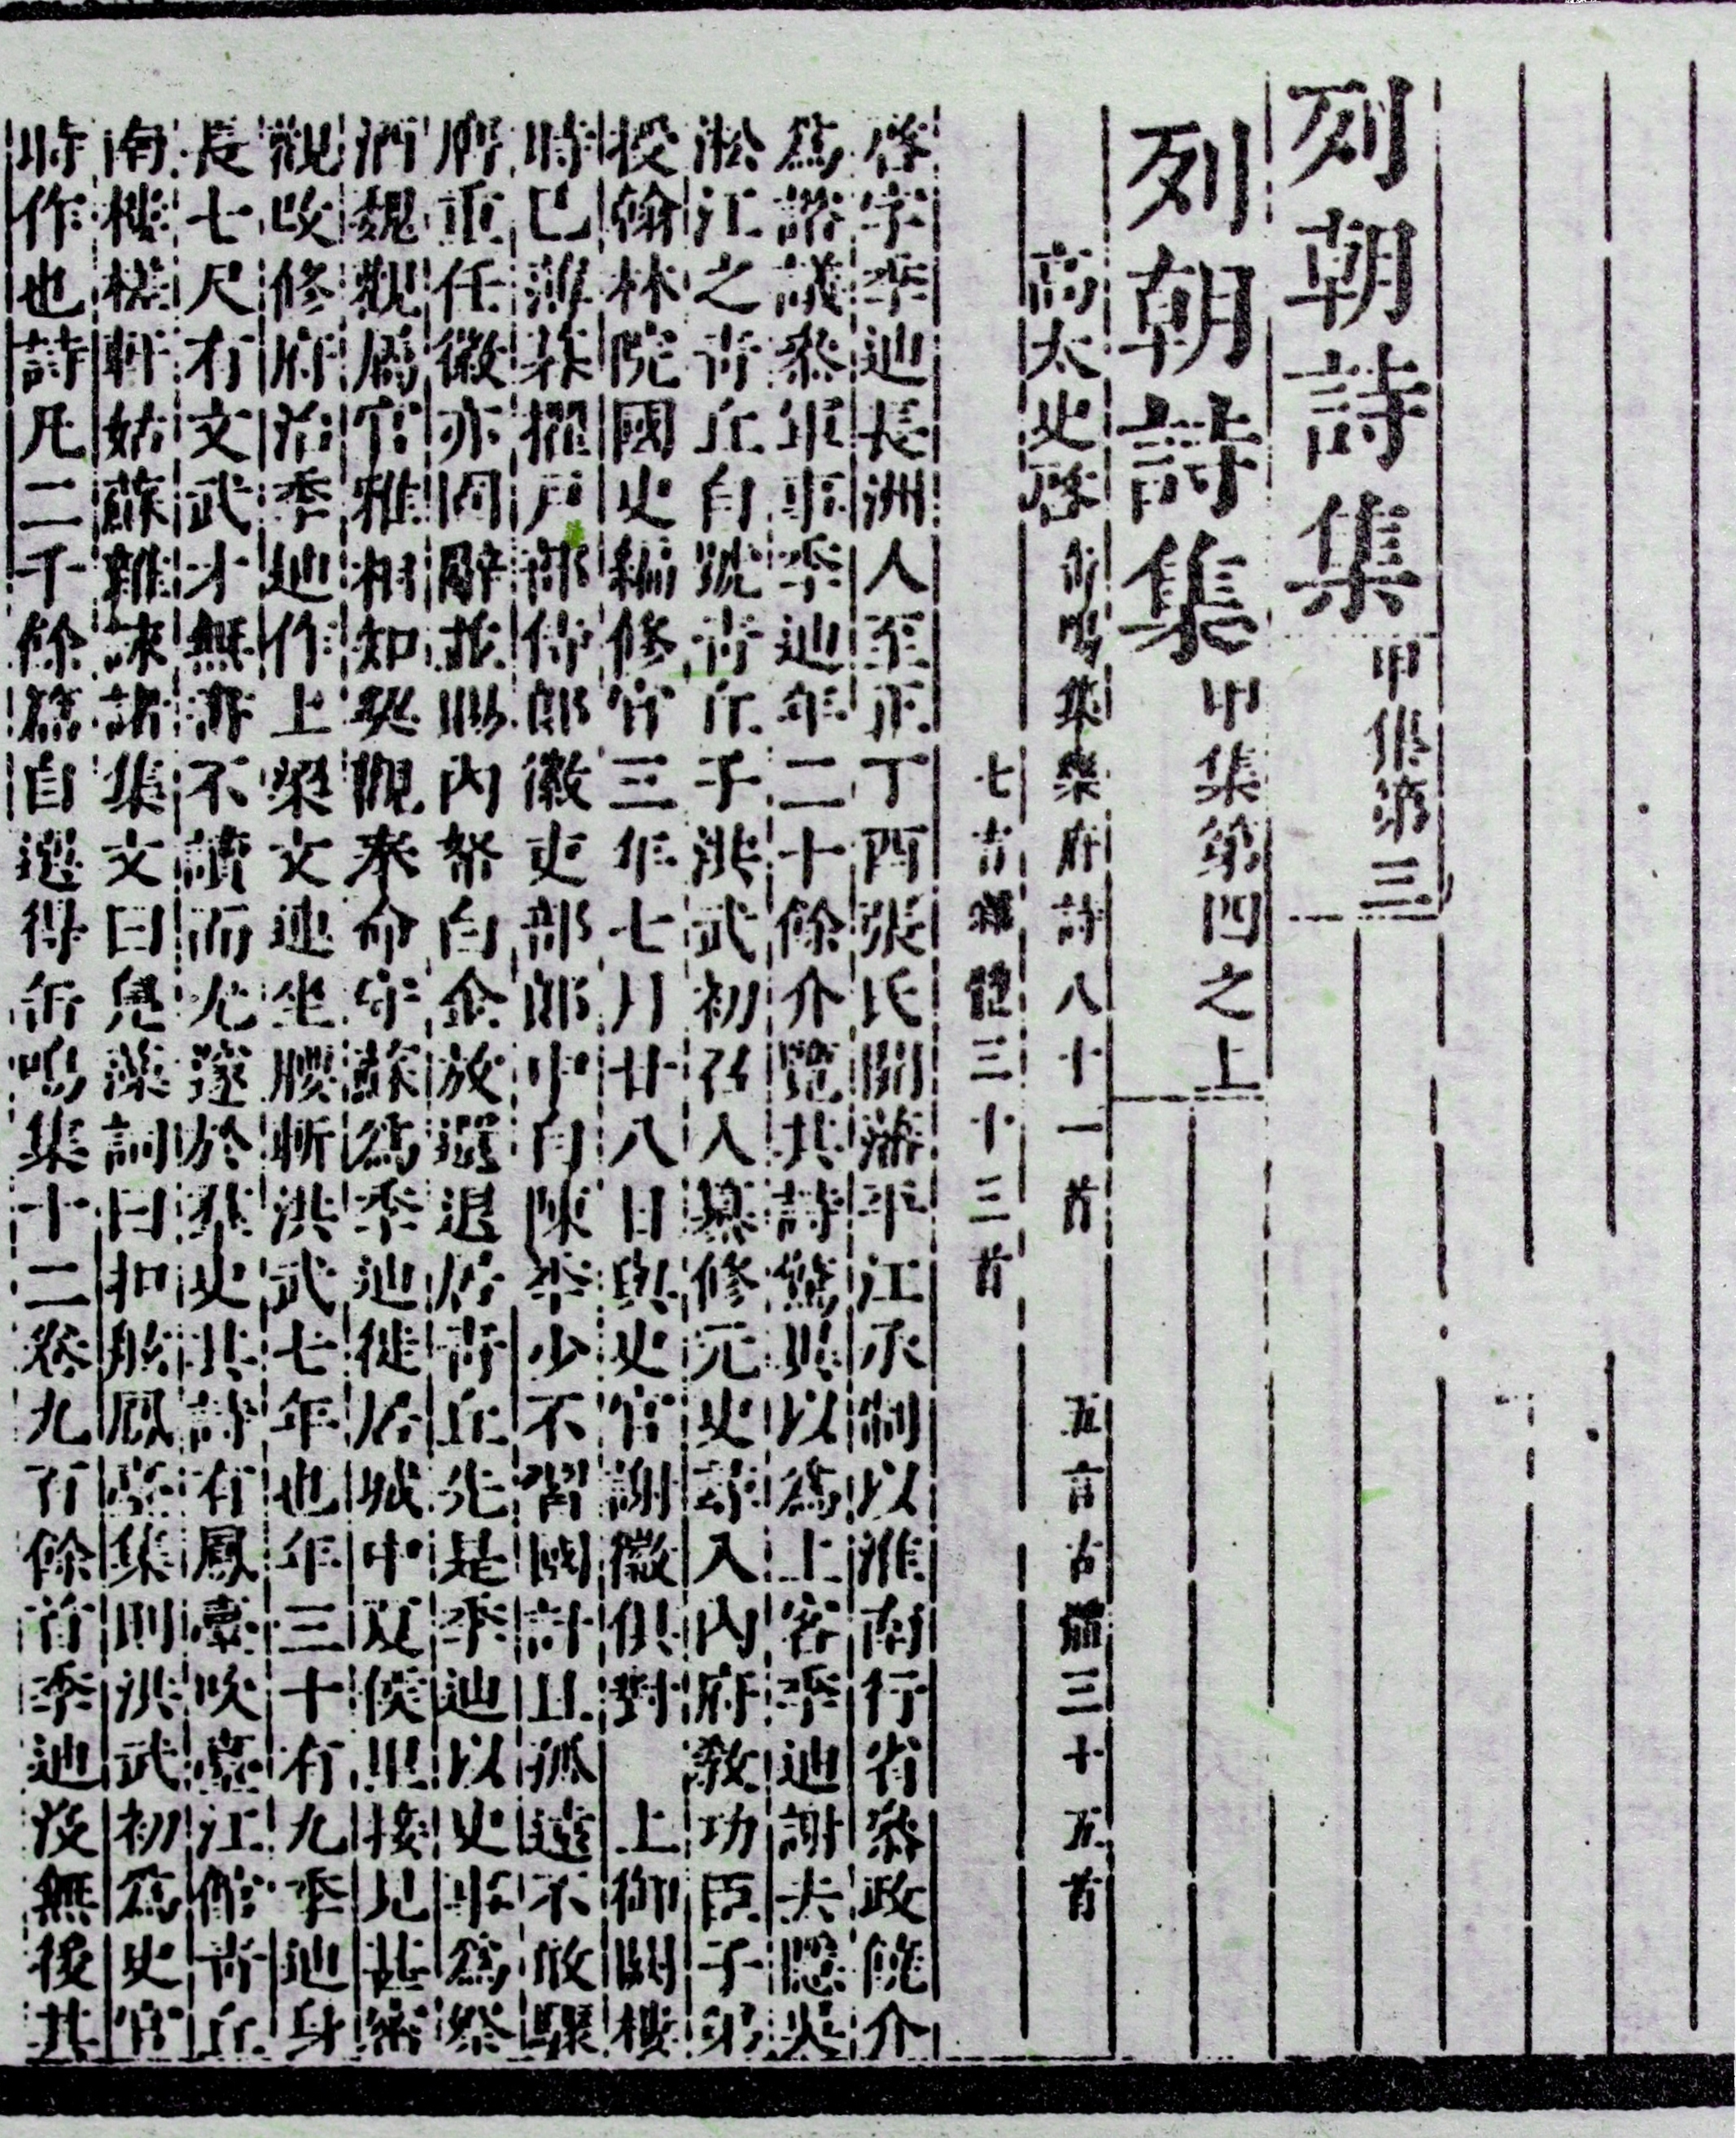 列朝詩集 甲集第三
列朝詩集 甲集第四之上
高太史啓 缶鳴集樂府詩八十一首 五言古體三十五首
七言雜體三十三首
啓字季迪長洲人至正丁酉張氏開藩平江承制以淮南行省參政饒介
爲諮議參軍事季迪年二十餘介覽其詩驚異以爲上客季迪謝去隱吳
淞江之青丘自號青丘子洪武初召入纂修元史尋入內府敎功臣子弟
授翰林院國史編修官三年七月廿八日與史官謝徽俱對 上御闕樓
時已薄暮擢戶部侍郎徽吏部郎中自陳季少不習國計且孤遠不敢驟
膺重任徽亦固辭並賜內帑白金放還退居青丘先是季迪以史事爲祭
酒魏觀屬官雅相知契觀奉命守蘇爲季迪徙居城中夏侯里接見甚密
觀改修府治季迪作上梁文連坐腰斬洪武七年也年三十有九季迪身
長七尺有文武才無書不讀而尤邃於羣史其詩有鳳臺吹臺江館青丘
南樓槎軒姑蘇雜詠諸集文曰鳧藻詞曰扣舷鳳臺集則洪武初爲史官
時作也詩凡二千餘篇自選得缶鳴集十二卷九百餘首季迪歿無後其